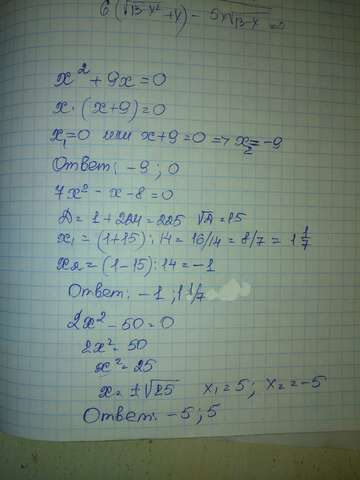 x² + 9x = 0
x · (x+9) = 0
x₁=0 или x+9=0 => x₂= -9
Ответ: -9 ; 0
7x² - x - 8 = 0
D = 1 + 224 = 225 √D = 15
x₁ = (1+15) : 14 = 16/14 = 8/7 = 1 1/7
x₂ = (1-15) : 14 = -1
Ответ: -1 ; 1 1/7
2x² - 50 = 0
2x² = 50
x² = 25
x = ±√25 x₁ = 5 ; x₂ = -5
Ответ: -5 ; 5